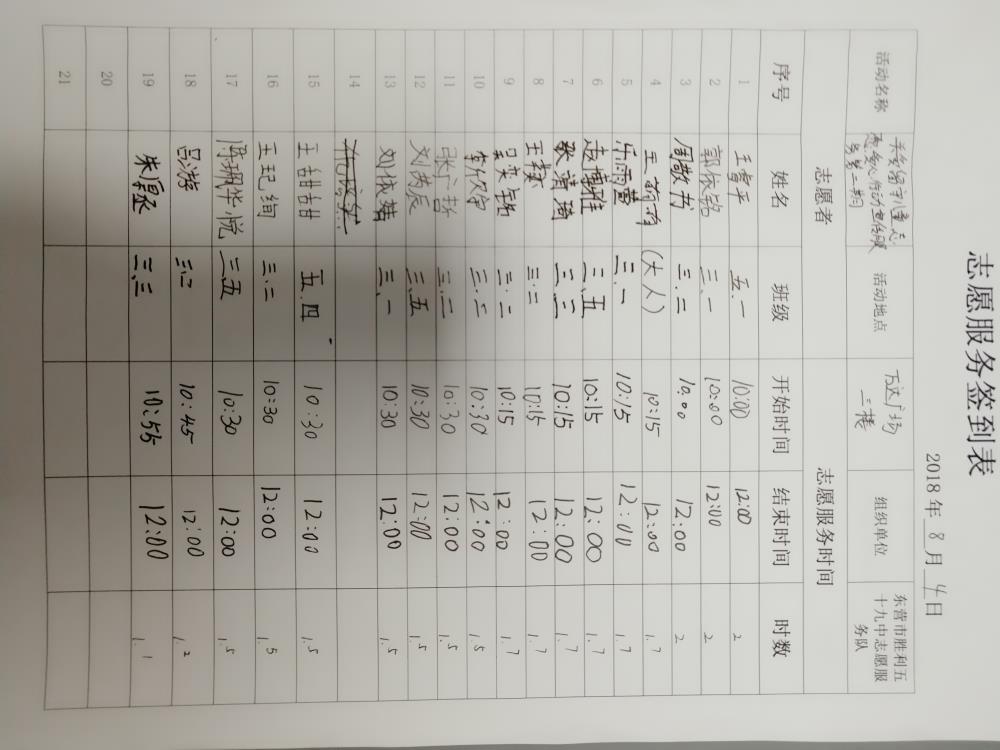 志愿服务签到表
2018年8月4日
活动名称 关爱留守儿童志愿 活动地点 万达广场二楼 组织单位 东营市胜利五十九中志愿服务队
志愿者 志愿服务时间
序号 姓名 班级 开始时间 结束时间 时数
1 五.一 10:00 12:00 2
2 郭依铭 三.一 10:00 12:00 2
3 周敬书 三.二 10:00 12:00 2
4 王 (大人) 10:15 12:00 1.7
5 乐雨萱 三.一 10:15 12:00 1.7
6 三.五 10:15 12:00 1.7
7 张清琦 三.三 10:15 12:00 1.7
8 三.二 10:15 12:00 1.7
9 吴奕铭 三.二 10:15 12:00 1.7
10 三.二 10:30 12:00 1.5
11 张广哲 三.二 10:30 12:00 1.5
12 三.五 10:30 12:00 1.5
13 刘依 三.一 10:30 12:00 1.5
14
15 王甜甜 五.四 10:30 12:00 1.5
16 王玘绚 三.二 10:30 12:00 1.5
17 陈珮华悦 三.五 10:30 12:00 1.5
18 吕游 三.二 10:45 12:00 1.2
19 朱厚丞 三.三 10:55 12:00 1.1
20
21